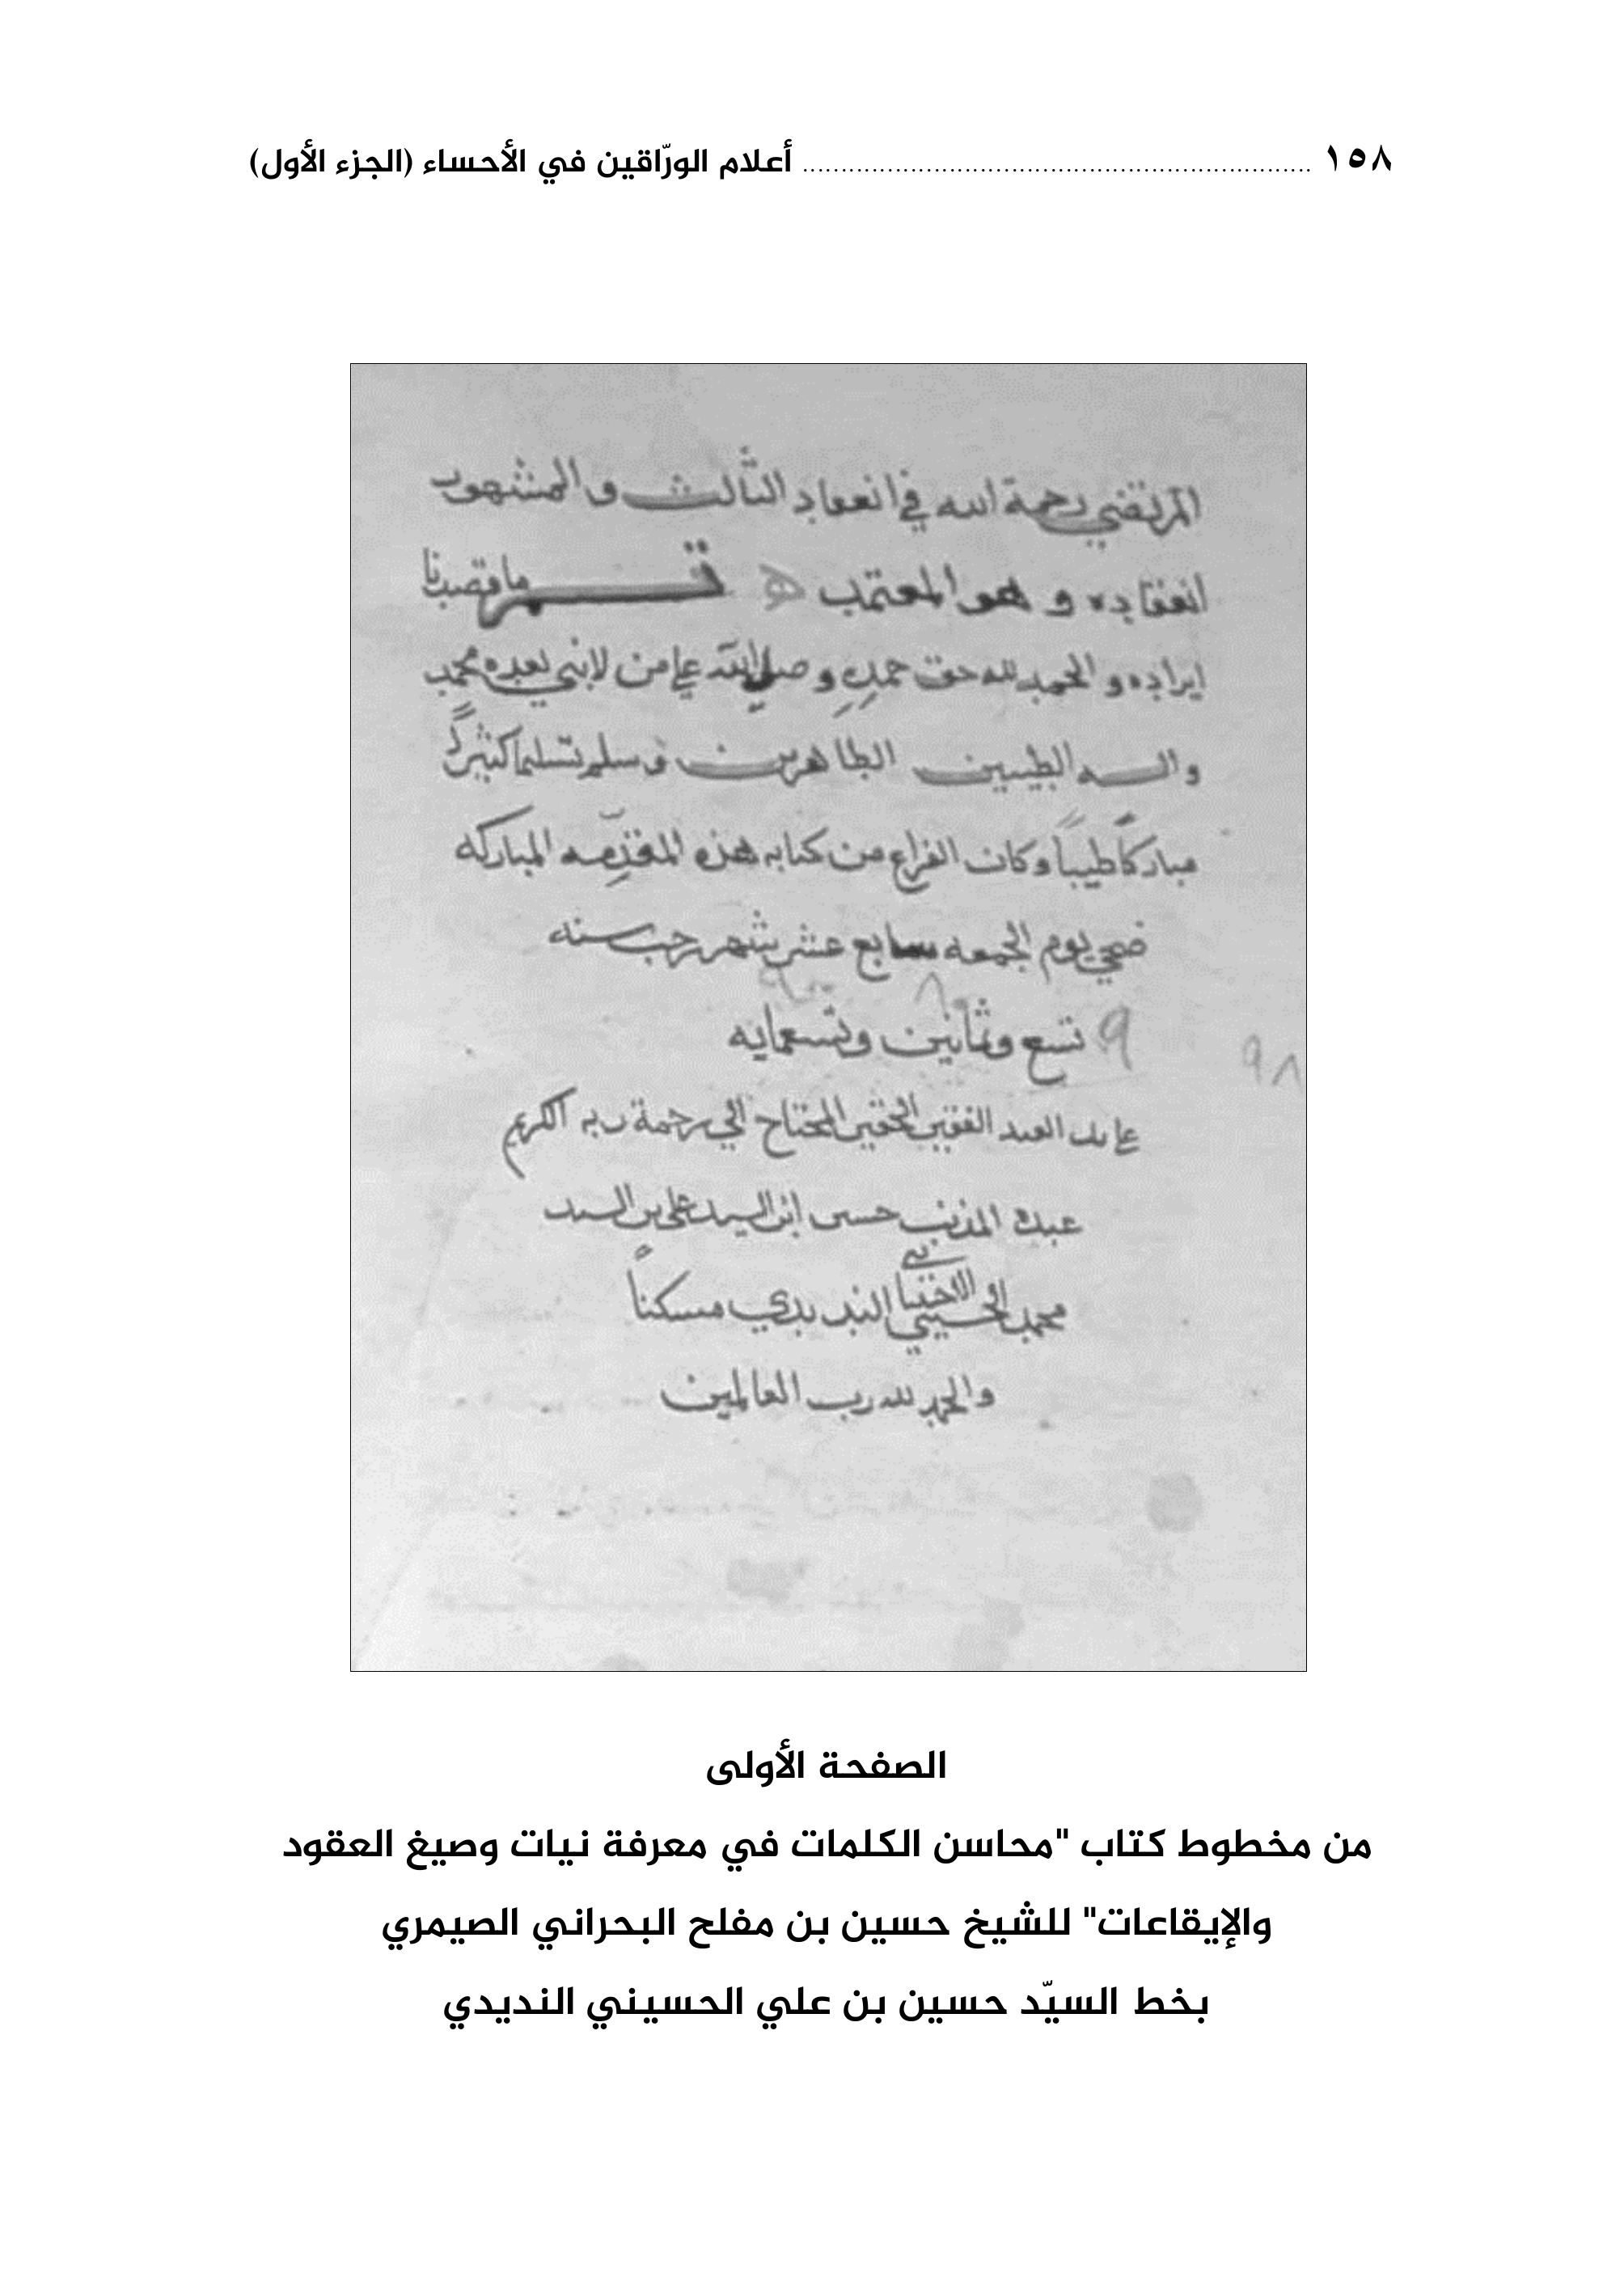 ١٥٨ ................................................................ أعلام الورّاقين في الأحساء (الجزء الأول)
المرتضي رحمة الله في انعقاد الثالث والمشهور
انعقاده وهو المعتمد ه تم ما قصدنا
ايراده والحمد لله حق حمده وصلي الله علي من لا نبي بعده محمد
واله الطيبين الطاهرين وسلم تسليما كثيراً
مباركاً طيباً وكان الفراغ من كتابه هذه المقدّمه المباركه
ضحي يوم الجمعه سابع عشر شهر رجب سنه
تسع وثمانين وتسعمايه
٩
٩٨
علي يد العبد الفقير الحقير المحتاج الي رحمة ربه الكريم
عبده المذنب حسين ابن السيد علي بن السيد
محمد الحسيني الندیدي مسكناً
والحمد لله رب العالمين
الصفحة الأولى
من مخطوط كتاب "محاسن الكلمات في معرفة نيات وصيغ العقود
والإيقاعات" للشيخ حسين بن مفلح البحراني الصيمري
بخط السيّد حسين بن علي الحسيني النديدي